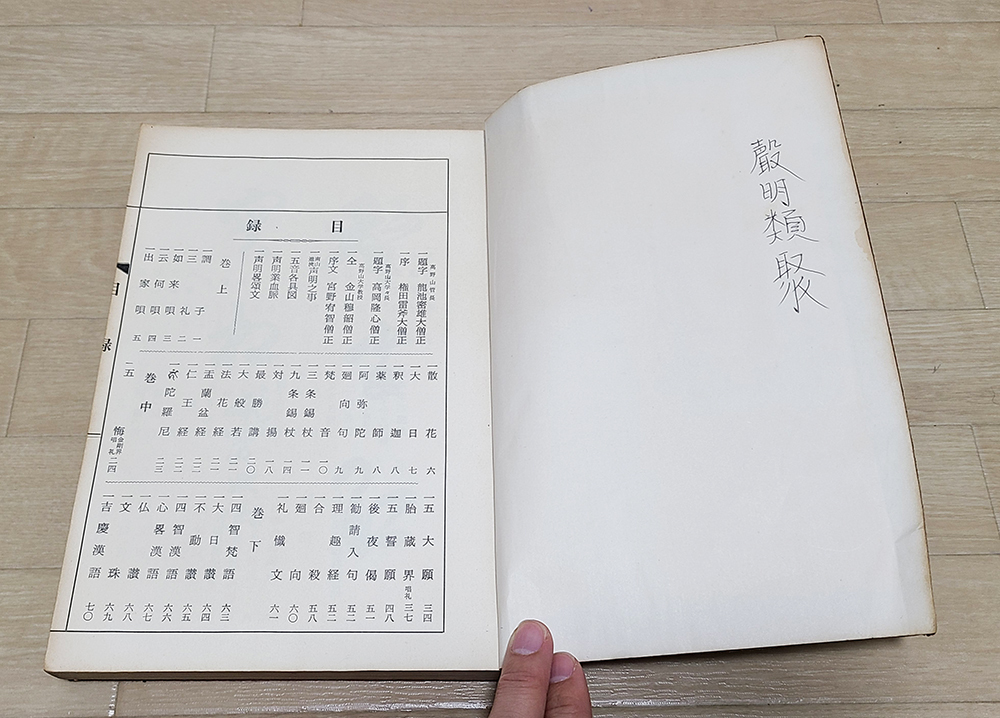 聲明類聚
目録
高野山管長
一題字 龍池密雄大僧正
一序 権田雷斧大僧正
高野山大学々長
一題字 高岡隆心僧正
一全 金山穆韶僧正
高野山大学教授
一序文 宮野宥智僧正
一南山進流声明之事
一五音各具図
一声明業血脈
一声明畧頌文
巻上
一調子 一
一三礼 二
一如来唄 三
一云何唄 四
一出家唄 五
一散花 六
一大日 七
一釈迦 八
一薬師 八
一阿弥陀 九
一廻向句 九
一梵音 一〇
一三条錫杖 一一
一九条錫杖 一四
一対揚 一八
一最勝講 二〇
一大般若 二一
一法花経 二一
一盂蘭盆経 二二
一仁王経 二二
陀羅尼 二三
巻中
一五悔 金剛界唱礼 二四
一五大願 三四
一胎蔵界 唱礼 三七
一五誓願 四八
一後夜偈 五一
一勧請入句 五二
一理趣経 五二
一合殺 五八
一廻向 六〇
一礼懺文 六一
巻下
一四智梵語 六三
一大日讃 六四
一不動讃 六五
一四智漢語 六六
一心畧漢語 六七
一仏讃 六八
一文珠 六九
一吉慶漢語 七〇
目録